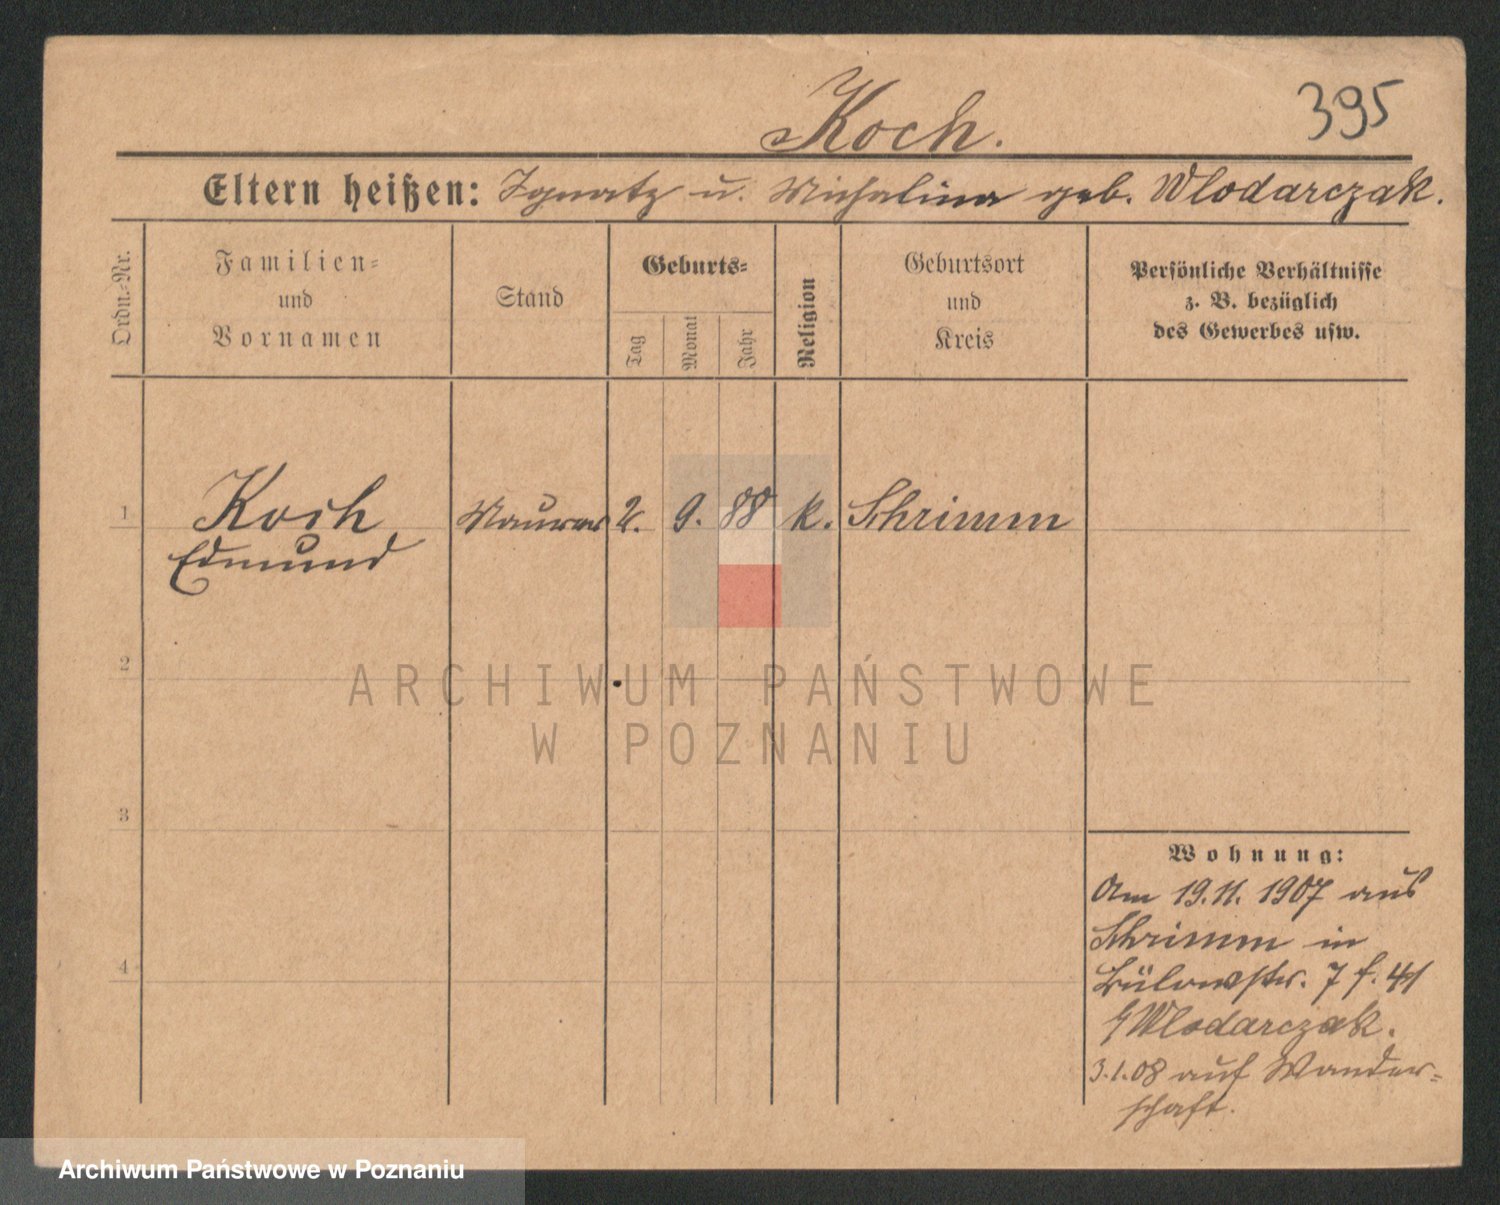 Koch.
395
Eltern heißen: Ignatz u. Michalina geb. Wlodarczak.
Ordn.-Nr.
Familien-
und
Vornamen
Stand
Geburts-
Tag
Monat
Jahr
Religion
Geburtsort
und
Kreis
Persönliche Verhältnisse
z. B. bezüglich
des Gewerbes usw.
1
Koch
Edmund
Maurer
2.
9.
88
k.
Schrimm
2
3
4
ARCHIWUM PAŃSTWOWE
W POZNANIU
Wohnung:
Am 19.11.1907 aus
Schrimm in
Bülowstr. 7
Wlodarczak.
3.1.08 auf Wander-
schaft.
Archiwum Państwowe w Poznaniu